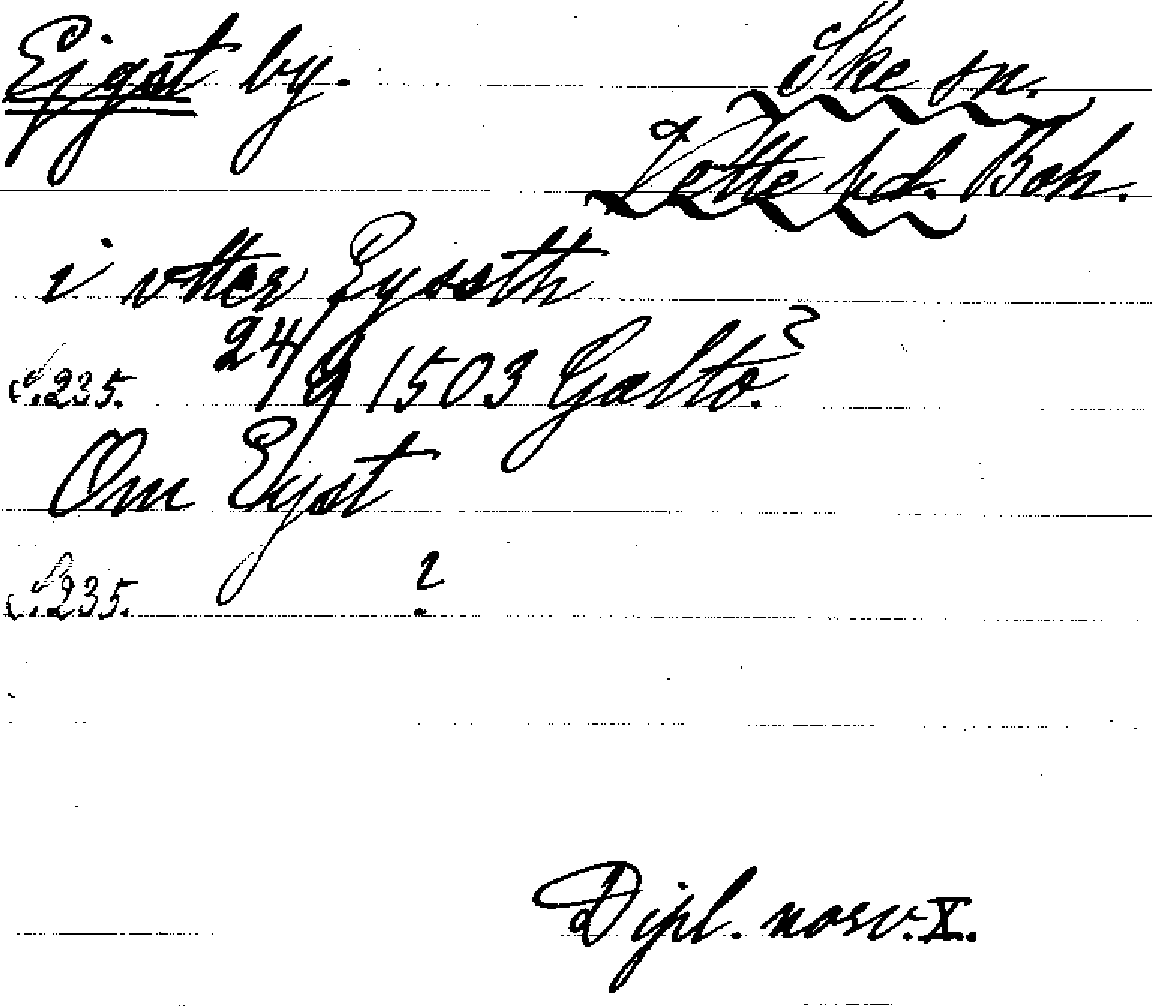 Ejgst by. Ske sn.
Vette hd. Boh.
i vtter Eyssth
S.235. 24/9 1503 Galtö?
Om Eyst
S.235. ?
Dipl. norv. X.